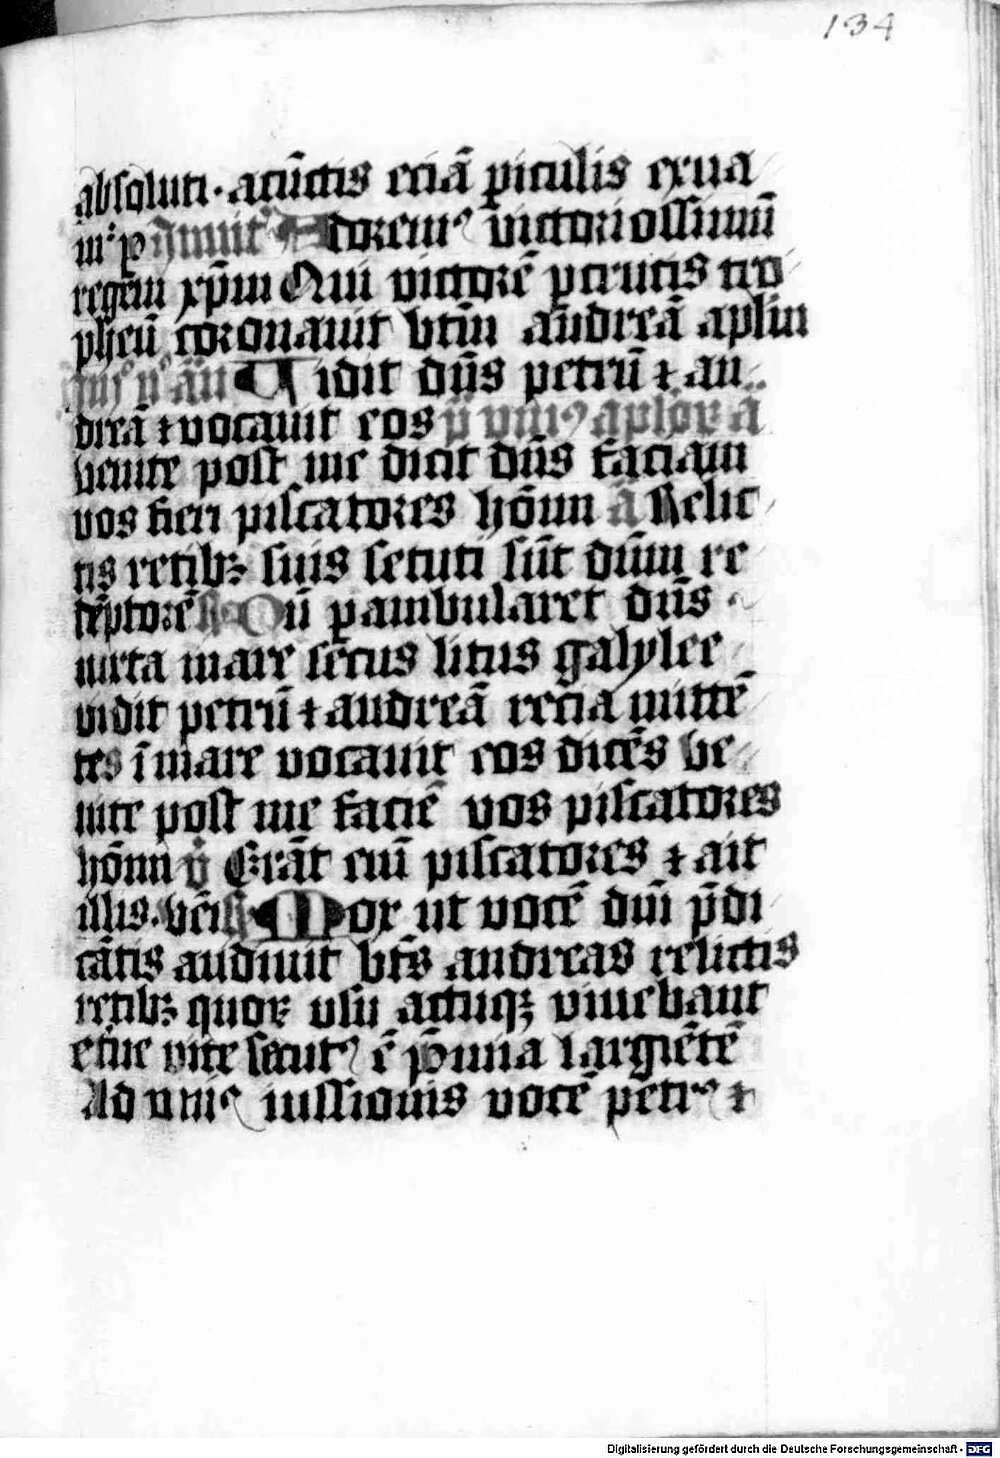 134
absoluti. a cūctis eciā ꝑiculis exua
mꝰ ꝑ Adoremꝰ victoriosissimū
regem xp̄m Qui victorē ptrucis tro
pheū coronauit btm̄ andreā aplm
Uidit dn̄s petrū ⁊ an
dreā ⁊ vocauit eos
uenite post me dicit dn̄s faciam
vos fieri piscatores hōm̄ a Relic
tis retibꝫ suis secuti sūt dn̄m re
dēptorē Cū ꝑambularet dn̄s
iuxta mare secus litus galylee
vidit petrū ⁊ andreā recia mittē
tes ī mare vocauit eos dicēs ve
nite post me faciē vos piscatores
hōm̄ Erāt em̄ piscatores ⁊ ait
illis. vēi Mox ut vocē dn̄i p̄di
cātis audiuit bt̄s andreas relictis
retibꝫ quoꝝ usu actuqꝫ viuebant
et̄ne vite secutꝰ ē p̄mia largiētē
Ad uniꝰ iussionis vocē petrꝰ ⁊
Digitalisierung gefördert durch die Deutsche Forschungsgemeinschaft - DFG